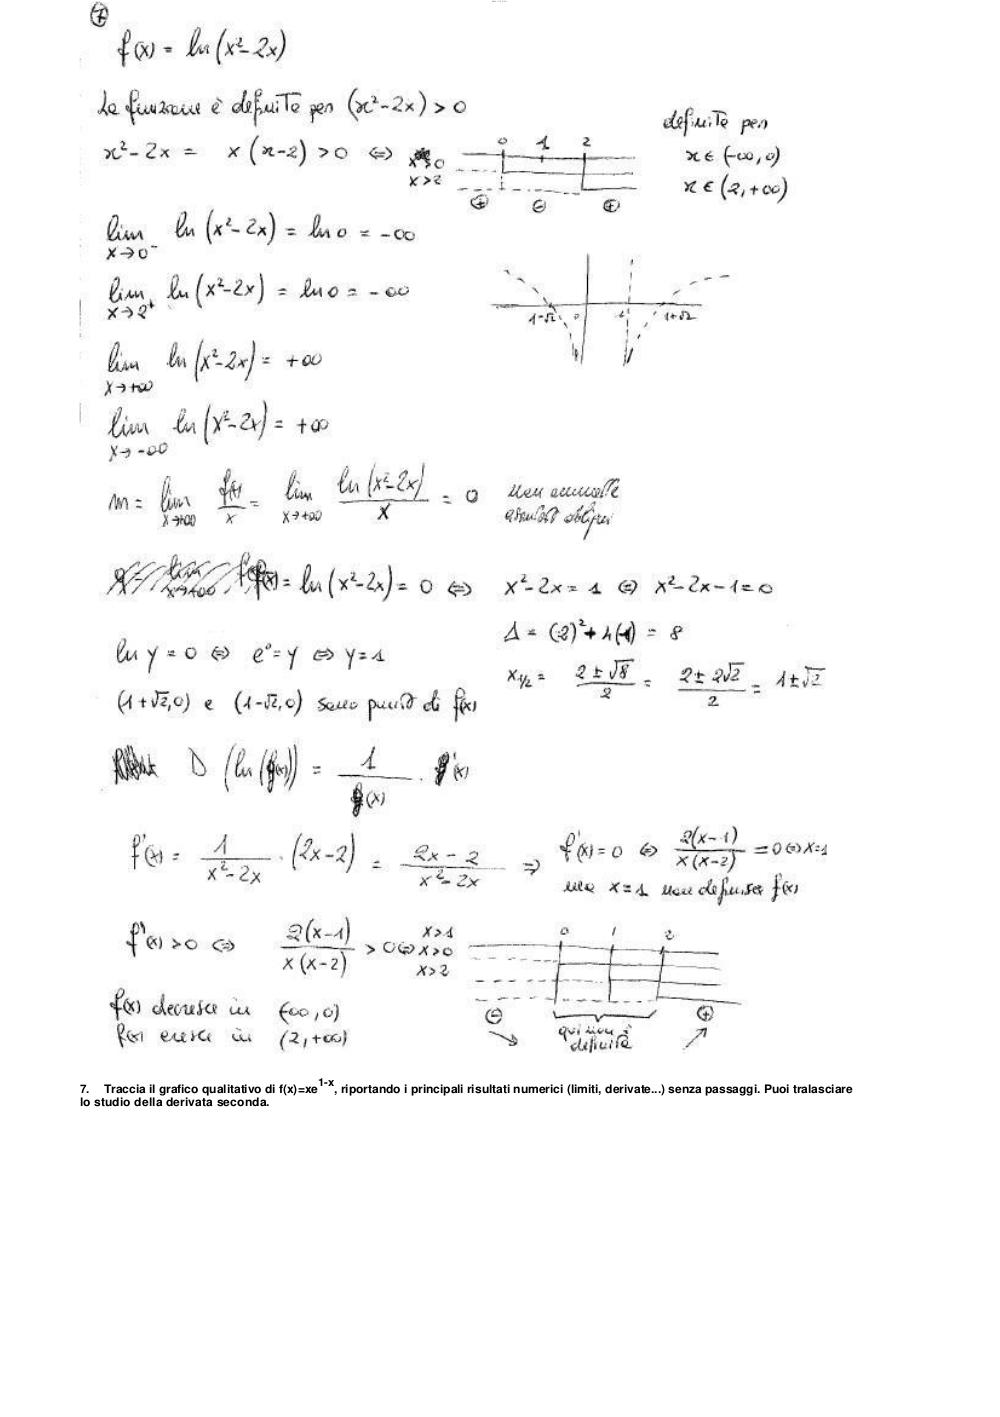 7
f(x) = ln(x²-2x)
La funzione è definita per (x²-2x) > 0
x²-2x = x(x-2) > 0 ⇔ x>0
x>2
0 1 2
+ - +
definita per
x ∈ (-∞,0)
x ∈ (2,+∞)
lim x→0⁻ ln(x²-2x) = ln 0 = -∞
lim x→2⁺ ln(x²-2x) = ln 0 = -∞
1-√2 0 2 1+√2
lim x→+∞ ln(x²-2x) = +∞
lim x→-∞ ln(x²-2x) = +∞
m = lim x→+∞ f(x)/x = lim x→+∞ ln(x²-2x)/x = 0 non ammette
asintoti obliqui
f(x) = ln(x²-2x) = 0 ⇔ x²-2x = 1 ⇔ x²-2x-1=0
Δ = (-2)²+4(1) = 8
ln y = 0 ⇔ e⁰=y ⇔ y=1
x₁/₂ = (2±√8)/2 = (2±2√2)/2 = 1±√2
(1+√2,0) e (1-√2,0) sono punti di f(x)
D (ln(g(x))) = 1/g(x) · g'(x)
f'(x) = 1/(x²-2x) · (2x-2) = (2x-2)/(x²-2x) ⇒ f'(x)=0 ⇔ 2(x-1)/(x(x-2)) = 0 ⇔ x=1
ma x=1 non definisce f(x)
f'(x) > 0 ⇔ 2(x-1)/(x(x-2)) > 0 ⇔ x>1
x>0
x>2
0 1 2
f(x) decresce in (-∞,0)
f(x) cresce in (2,+∞)
- qui non è
definita +
7. Traccia il grafico qualitativo di f(x)=xe^1-x, riportando i principali risultati numerici (limiti, derivate...) senza passaggi. Puoi tralasciare
lo studio della derivata seconda.